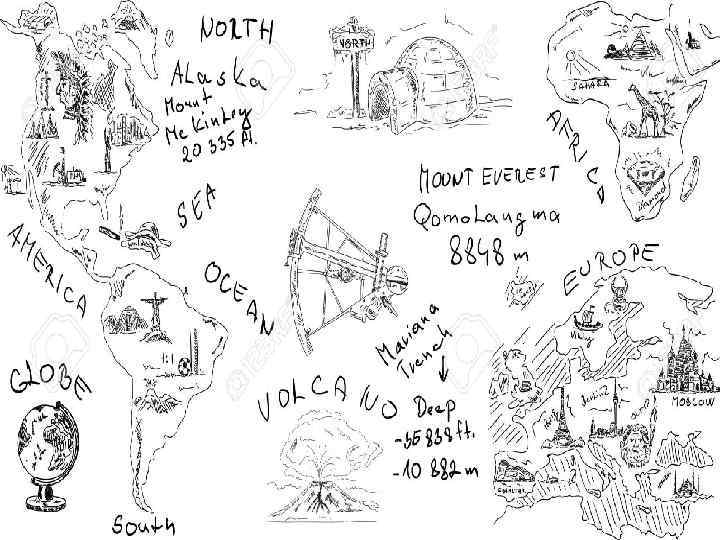 NORTH
Alaska
Mount
Mc Kinley
20 335 ft.
NORTH
SAHARA
AFRICA
diamond
SEA
MOUNT EVEREST
Qomolangma
8848 m
AMERICA
OCEAN
EUROPE
Viking
Mariana
Trench
MOSCOW
GLOBE
VOLCANO
Deep
-35 838 ft.
-10 882 m
1:1
South